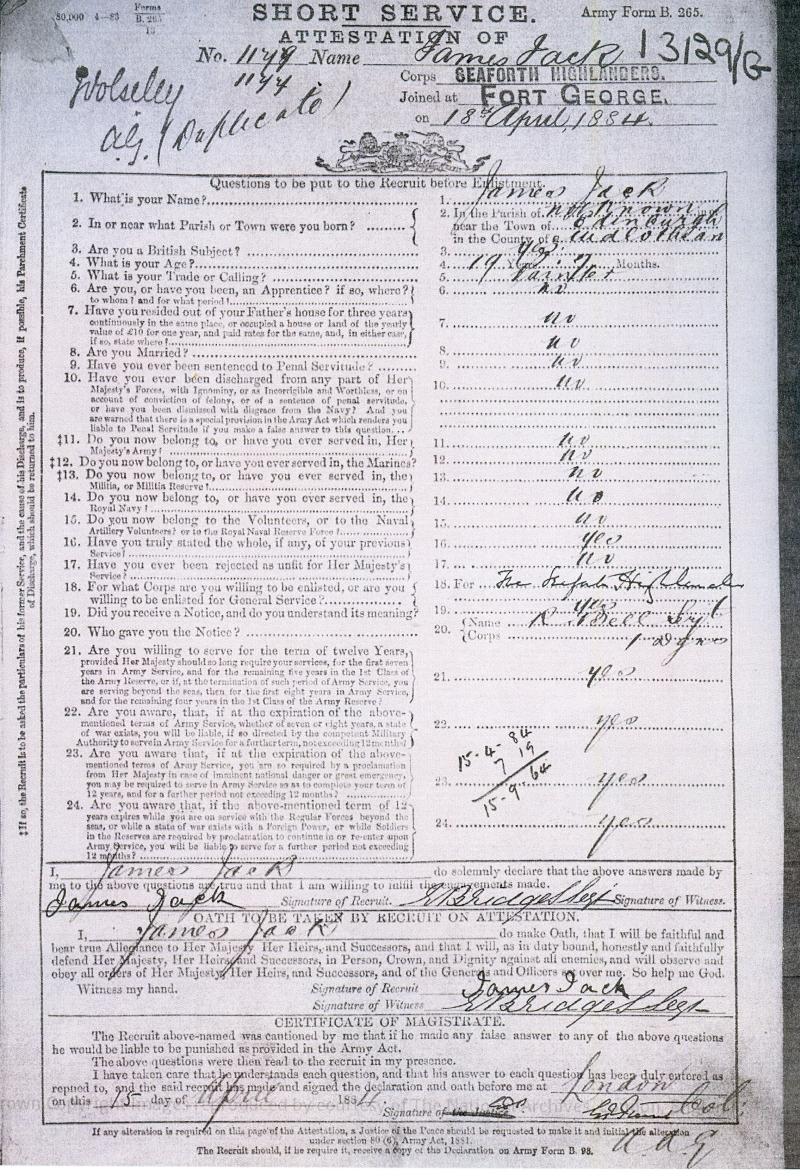 50,000 4—83 Forms B. 265 13
SHORT SERVICE.
Army Form B. 265.
ATTESTATION OF
No. 1149 Name James Jack 13129/G
1144
Wolseley
A.G. (Duplicate)
Corps SEAFORTH HIGHLANDERS.
Joined at FORT GEORGE.
on 18th April, 1884.
Questions to be put to the Recruit before Enlistment.
1. What is your Name? 1. James Jack
2. In or near what Parish or Town were you born? 2. In the Parish of not Known
near the Town of Edinburgh
in the County of Midlothian
3. Are you a British Subject? 3. yes
4. What is your Age? 4. 19 Years 7 Months.
5. What is your Trade or Calling? 5. Painter
6. Are you, or have you been, an Apprentice? if so, where? 6. no
to whom? and for what period?
7. Have you resided out of your Father's house for three years
continuously in the same place, or occupied a house or land of the yearly
value of £10 for one year, and paid rates for the same, and, in either case, 7. no
if so, state where?
8. Are you Married? 8. no
9. Have you ever been sentenced to Penal Servitude? 9. no
10. Have you ever been discharged from any part of Her 10. no
Majesty's Forces, with Ignominy, or as Incorrigible and Worthless, or on
account of conviction of felony, or of a sentence of penal servitude,
or have you been dismissed with disgrace from the Navy? And you
are warned that there is a special provision in the Army Act which renders you
liable to Penal Servitude if you make a false answer to this question.
‡11. Do you now belong to, or have you ever served in, Her 11. no
Majesty's Army?
‡12. Do you now belong to, or have you ever served in, the Marines? 12. no
‡13. Do you now belong to, or have you ever served in, the 13. no
Militia, or Militia Reserve?
14. Do you now belong to, or have you ever served in, the 14. no
Royal Navy?
15. Do you now belong to the Volunteers, or to the Naval 15. no
Artillery Volunteers? or to the Royal Naval Reserve Force?
16. Have you truly stated the whole, if any, of your previous 16. yes
Service?
17. Have you ever been rejected as unfit for Her Majesty's 17. no
Service?
18. For what Corps are you willing to be enlisted, or are you 18. For The Seaforth Highlanders
willing to be enlisted for General Service?
19. Did you receive a Notice, and do you understand its meaning? 19. yes
20. Who gave you the Notice? 20. Name Bell Sergt
Corps
21. Are you willing to serve for the term of twelve Years,
provided Her Majesty should so long require your services, for the first seven
years in Army Service, and for the remaining five years in the 1st Class of
the Army Reserve, or if, at the termination of such period of Army Service, you 21. yes
are serving beyond the seas, then for the first eight years in Army Service,
and for the remaining four years in the 1st Class of the Army Reserve?
22. Are you aware, that, if at the expiration of the above-
mentioned terms of Army Service, whether of seven or eight years, a state 22. yes
of war exists, you will be liable, if so directed by the competent Military
Authority to serve in Army Service for a further term, not exceeding 12 months?
23. Are you aware that, if at the expiration of the above-
mentioned terms of Army Service, you are so required by a proclamation
from Her Majesty in case of imminent national danger or great emergency,
you may be required to serve in Army Service so as to complete your term of 23. yes
12 years, and for a further period not exceeding 12 months?
15-4-84
7 19
15-9-64
24. Are you aware that, if the above-mentioned term of 12
years expires while you are on service with the Regular Forces beyond the
seas, or while a state of war exists with a Foreign Power, or while Soldiers
in the Reserve are required by proclamation to continue in or re-enter upon 24. yes
Army Service, you will be liable to serve for a further period not exceeding
12 months?
I, James Jack do solemnly declare that the above answers made by
me to the above questions are true and that I am willing to fulfil the engagements made.
James Jack Signature of Recruit. Bridges Sergt Signature of Witness.
OATH TO BE TAKEN BY RECRUIT ON ATTESTATION.
I, James Jack do make Oath, that I will be faithful and
bear true Allegiance to Her Majesty Her Heirs, and Successors, and that I will, as in duty bound, honestly and faithfully
defend Her Majesty, Her Heirs, and Successors, in Person, Crown, and Dignity against all enemies, and will observe and
obey all orders of Her Majesty, Her Heirs, and Successors, and of the Generals and Officers set over me. So help me God.
Witness my hand. Signature of Recruit James Jack
Signature of Witness Bridges Sergt
CERTIFICATE OF MAGISTRATE.
The Recruit above-named was cautioned by me that if he made any false answer to any of the above questions
he would be liable to be punished as provided in the Army Act.
The above questions were then read to the recruit in my presence.
I have taken care that he understands each question, and that his answer to each question has been duly entered as
replied to, and the said recruit has made and signed the declaration and oath before me at London
on this 15 day of April 1884.
Signature of the Justice Col.
A A G
If any alteration is required on this page of the Attestation, a Justice of the Peace should be requested to make it and initial the alteration
under section 80 (6), Army Act, 1881.
The Recruit should, if he require it, receive a copy of the Declaration on Army Form B. 98.
‡ If so, the Recruit is to be asked the particulars of his former Service, and the cause of his Discharge, and is to produce, if possible, his Parchment Certificate
of Discharge, which should be returned to him.